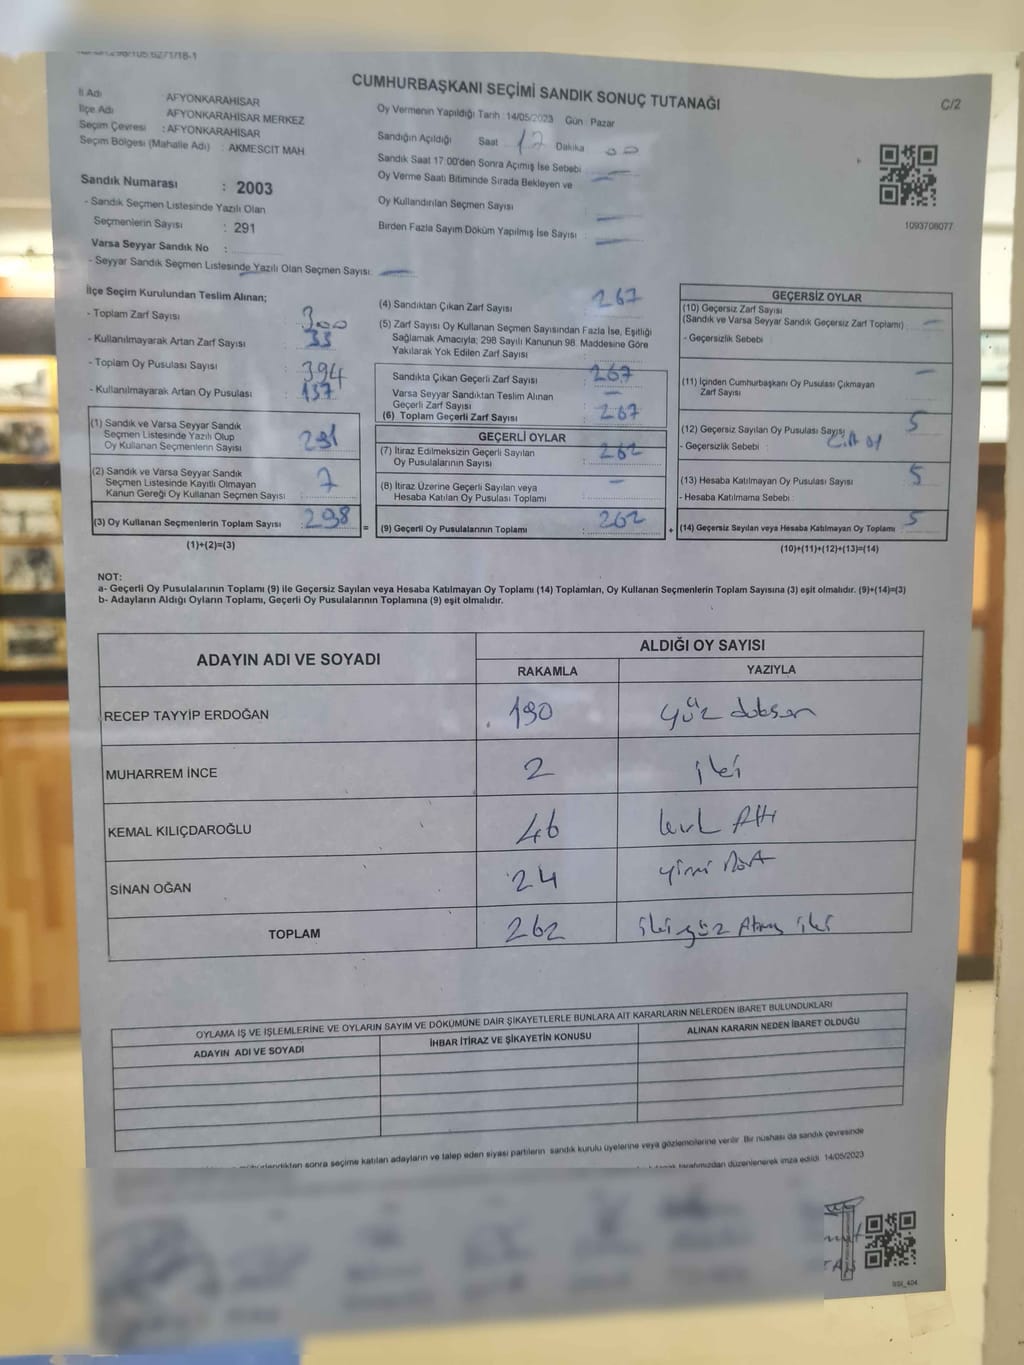 CUMHURBAŞKANI SEÇİMİ SANDIK SONUÇ TUTANAĞI
C/2
İl Adı : AFYONKARAHİSAR
İlçe Adı : AFYONKARAHİSAR MERKEZ
Seçim Çevresi : AFYONKARAHİSAR
Seçim Bölgesi (Mahalle Adı) : AKMESCİT MAH.
Oy Vermenin Yapıldığı Tarih : 14/05/2023 Gün : Pazar
Sandığın Açıldığı Saat 17 Dakika 00
Sandık Saat 17:00'den Sonra Açılmış İse Sebebi
Oy Verme Saati Bitiminde Sırada Bekleyen ve
Oy Kullandırılan Seçmen Sayısı
Birden Fazla Sayım Döküm Yapılmış İse Sayısı :
1093708077
Sandık Numarası : 2003
- Sandık Seçmen Listesinde Yazılı Olan
Seçmenlerin Sayısı : 291
Varsa Seyyar Sandık No :
- Seyyar Sandık Seçmen Listesinde Yazılı Olan Seçmen Sayısı:
İlçe Seçim Kurulundan Teslim Alınan;
- Toplam Zarf Sayısı : 300
- Kullanılmayarak Artan Zarf Sayısı : 33
- Toplam Oy Pusulası Sayısı : 394
- Kullanılmayarak Artan Oy Pusulası : 137
(1) Sandık ve Varsa Seyyar Sandık
Seçmen Listesinde Yazılı Olup
Oy Kullanan Seçmenlerin Sayısı : 291
(2) Sandık ve Varsa Seyyar Sandık
Seçmen Listesinde Kayıtlı Olmayan
Kanun Gereği Oy Kullanan Seçmen Sayısı : 7
(3) Oy Kullanan Seçmenlerin Toplam Sayısı : 298 =
(1)+(2)=(3)
(4) Sandıktan Çıkan Zarf Sayısı 267
(5) Zarf Sayısı Oy Kullanan Seçmen Sayısından Fazla İse, Eşitliği
Sağlamak Amacıyla; 298 Sayılı Kanunun 98. Maddesine Göre
Yakılarak Yok Edilen Zarf Sayısı :
Sandıkta Çıkan Geçerli Zarf Sayısı : 267
Varsa Seyyar Sandıktan Teslim Alınan
Geçerli Zarf Sayısı :
(6) Toplam Geçerli Zarf Sayısı : 267
GEÇERLİ OYLAR
(7) İtiraz Edilmeksizin Geçerli Sayılan
Oy Pusulalarının Sayısı : 262
(8) İtiraz Üzerine Geçerli Sayılan veya
Hesaba Katılan Oy Pusulası Toplamı :
(9) Geçerli Oy Pusulalarının Toplamı : 262 +
GEÇERSİZ OYLAR
(10) Geçersiz Zarf Sayısı
(Sandık ve Varsa Seyyar Sandık Geçersiz Zarf Toplamı) :
- Geçersizlik Sebebi :
(11) İçinden Cumhurbaşkanı Oy Pusulası Çıkmayan
Zarf Sayısı :
(12) Geçersiz Sayılan Oy Pusulası Sayısı : 5
- Geçersizlik Sebebi :
(13) Hesaba Katılmayan Oy Pusulası Sayısı : 5
- Hesaba Katılmama Sebebi :
(14) Geçersiz Sayılan veya Hesaba Katılmayan Oy Toplamı : 5
(10)+(11)+(12)+(13)=(14)
NOT:
a- Geçerli Oy Pusulalarının Toplamı (9) ile Geçersiz Sayılan veya Hesaba Katılmayan Oy Toplamı (14) Toplamları, Oy Kullanan Seçmenlerin Toplam Sayısına (3) eşit olmalıdır. (9)+(14)=(3)
b- Adayların Aldığı Oyların Toplamı, Geçerli Oy Pusulalarının Toplamına (9) eşit olmalıdır.
ADAYIN ADI VE SOYADI
ALDIĞI OY SAYISI
RAKAMLA YAZIYLA
RECEP TAYYİP ERDOĞAN 190 yüz doksan
MUHARREM İNCE 2 iki
KEMAL KILIÇDAROĞLU 46 kırk Altı
SİNAN OĞAN 24 yirmi Dört
TOPLAM 262 iki yüz Atmış iki
OYLAMA İŞ VE İŞLEMLERİNE VE OYLARIN SAYIM VE DÖKÜMÜNE DAİR ŞİKAYETLERLE BUNLARA AİT KARARLARIN NELERDEN İBARET BULUNDUKLARI
ADAYIN ADI VE SOYADI
İHBAR İTİRAZ VE ŞİKAYETİN KONUSU
ALINAN KARARIN NEDEN İBARET OLDUĞU
sonra seçime katılan adayların ve talep eden siyasi partilerin sandık kurulu üyelerine veya gözlemcilerine verilir. Bir nüshası da sandık çevresinde
tarafımızdan düzenlenerek imza edildi. 14/05/2023